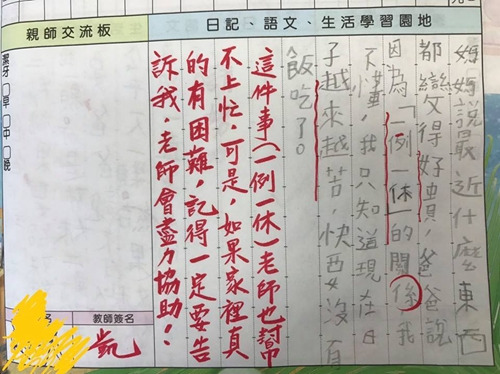 親師交流板
日記、語文、生活學習園地
媽媽說最近什麼東西
都變得好貴，爸爸說
因為「一例一休」的關係我
不懂，我只知道現在日
子越來越苦，快要沒有
飯吃了。
這件事(一例一休)老師也幫
不上忙，可是，如果家裡真
的有困難，記得一定要告
訴我，老師會盡力協助！
潔牙□早□中□晚
教師簽名
凱